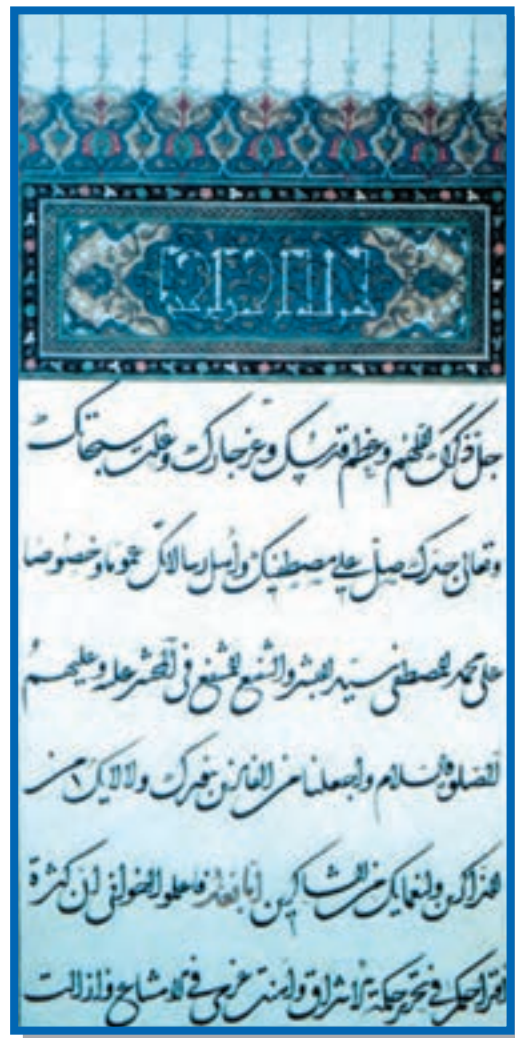 جل ذكرك اللهم وعظم قدسك وعز جارك وعلت سبحاتك
وتعالى جدك صل على مصطفيك وأهل رسالاتك عموما وخصوصا
على محمد المصطفى سيد البشر والشفيع المشفع فى المحشر عليه وعليهم
الصلوة والسلام واجعلنا من الفائزين بنورك ولالائك من
الذاكرين ولنعمائك من الشاكرين اما بعد فاعلموا اخوانى ان كثرة
اقتراحكم فى تحرير حكمة الاشراق واهنت عزمى فى الامتناع وازالت